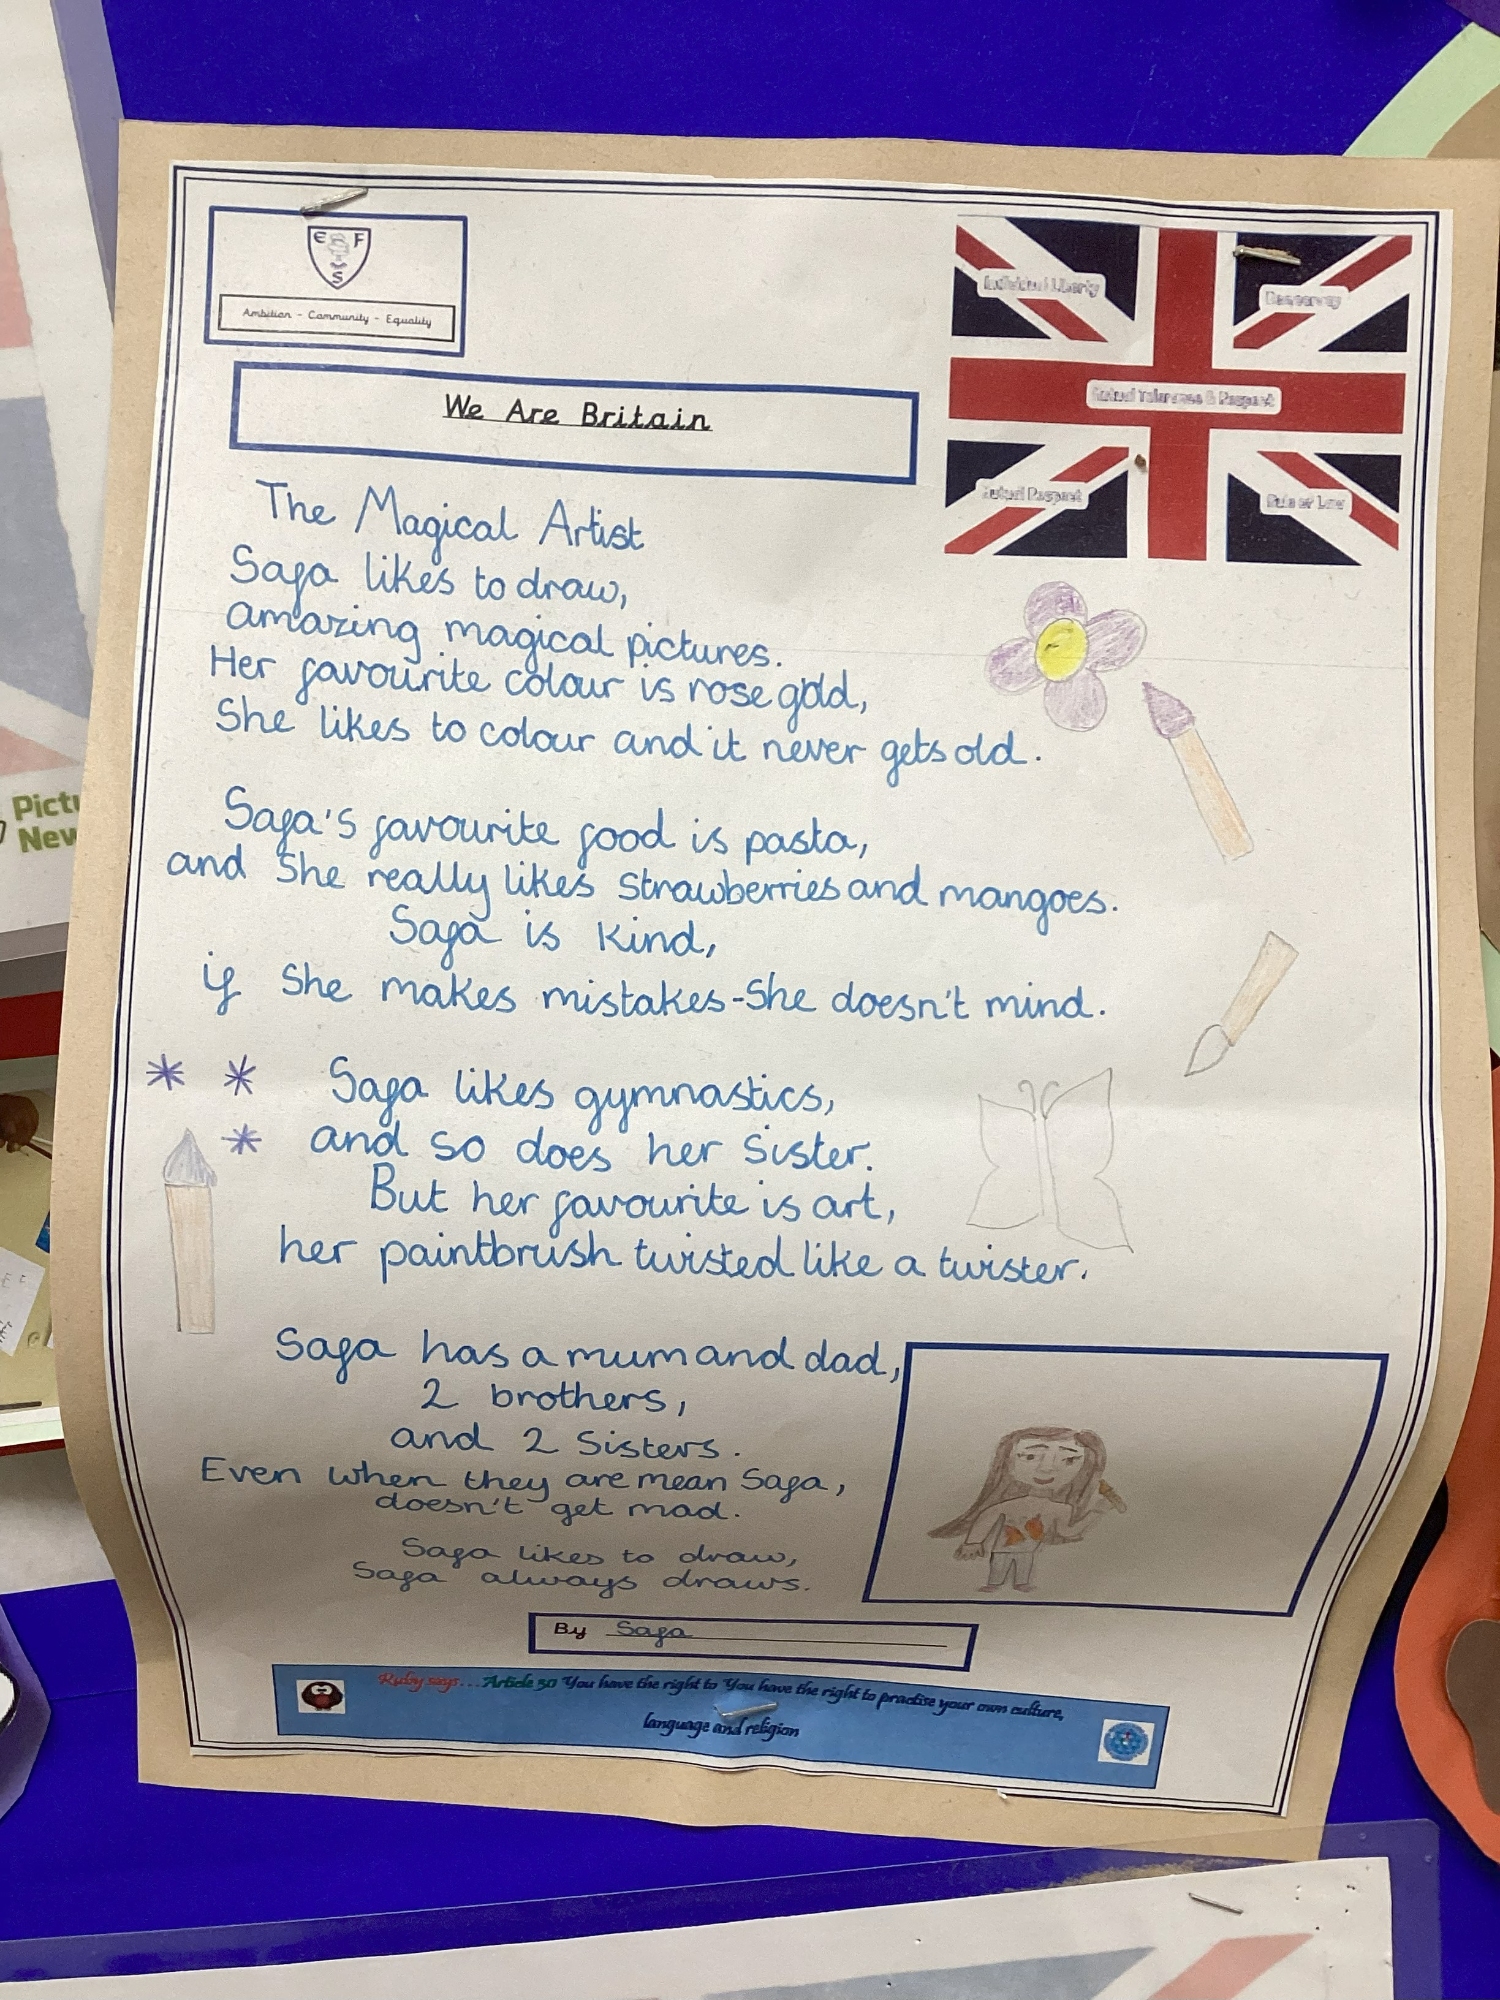 E F
S
Ambition - Community - Equality
Individual Liberty
Democracy
Mutual Tolerance & Respect
Mutual Respect
Rule of Law
We Are Britain
The Magical Artist
Saga likes to draw,
amazing magical pictures.
Her favourite colour is rose gold,
She likes to colour and it never gets old.
Saga's favourite food is pasta,
and She really likes strawberries and mangoes.
Saga is kind,
if She makes mistakes-She doesn't mind.
Saga likes gymnastics,
and so does her sister.
But her favourite is art,
her paintbrush twisted like a twister.
Saga has a mum and dad,
2 brothers,
and 2 sisters.
Even when they are mean Saga,
doesn't get mad.
Saga likes to draw,
Saga always draws.
By Saga
Ruby says... Article 30 You have the right to You have the right to practise your own culture,
language and religion
Pictu
New